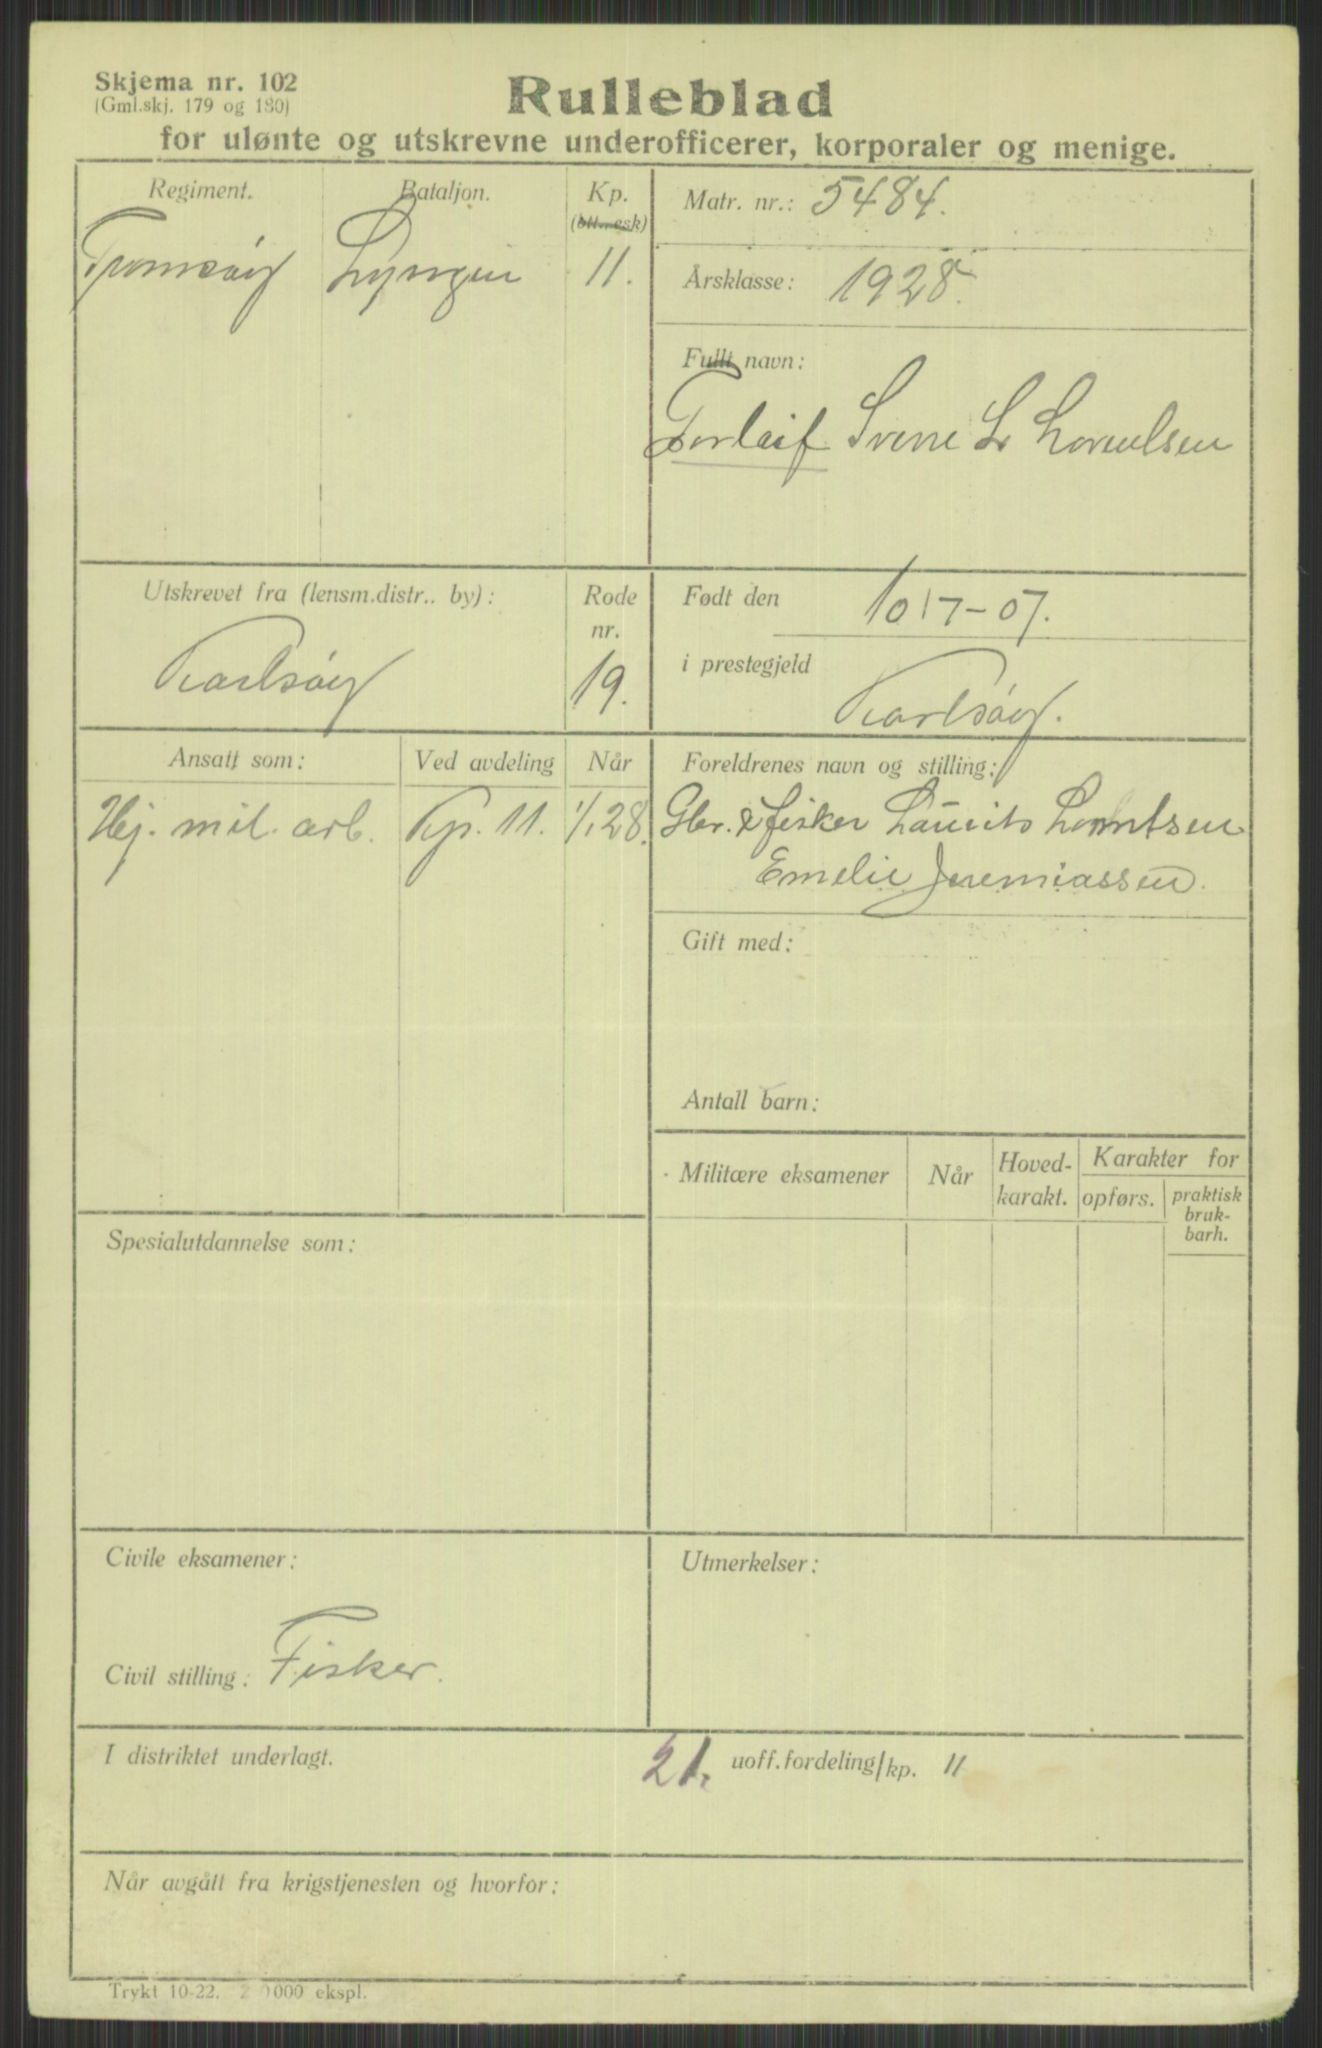 Skjema nr. 102
(Gml.skj. 179 og 180)
Rulleblad
for ulønte og utskrevne underofficerer, korporaler og menige.
Regiment.
Bataljon.
Kp.
(btt. esk)
Tromsöy
Lyngen
11.
Matr. nr.: 5484.
Årsklasse: 1928.
Fullt navn:
Torleif Sverre L Lorentsen
Utskrevet fra (lensm.distr.. by):
Karlsöy
Rode
nr.
19.
Født den 10/7-07.
i prestegjeld
Karlsöy.
Ansatt som:
Ved avdeling
Når
Hj. mil. arb.
Kp. 11.
1/1 28.
Foreldrenes navn og stilling:
Gbr. & fisker Laurits Lorentsen
Emelie Jeremiassen.
Gift med:
Antall barn:
Militære eksamener
Når
Hoved-
karakt.
Karakter for
opførs.
praktisk
bruk-
barh.
Spesialutdannelse som:
Civile eksamener:
Civil stilling: Fisker.
Utmerkelser:
I distriktet underlagt.
21. uoff.fordeling/kp. 11
Når avgått fra krigstjenesten og hvorfor:
Trykt 10-22. 2 0000 ekspl.